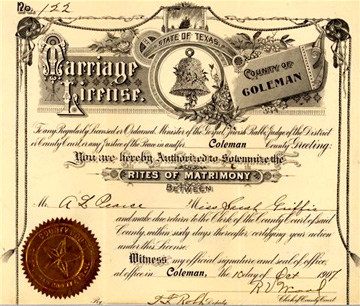 No. 122
STATE OF TEXAS
Marriage
License.
COUNTY OF
COLEMAN
To any Regularly Licensed or Ordained Minister of the Gospel, Jewish Rabbi, Judge of the District
or County Court, or any Justice of the Peace in and for Coleman County Greeting:
You are hereby Authorized to Solemnize the
RITES OF MATRIMONY
BETWEEN
Mr. A L Pearce Miss Griffin
and make due return to the Clerk of the County Court of said
County, within sixty days thereafter, certifying your action
under this License.
Witness my official signature and seal of office, at
office in Coleman, the day of Oct 1907
R L
Clerk of County Court
By Deputy
COUNTY